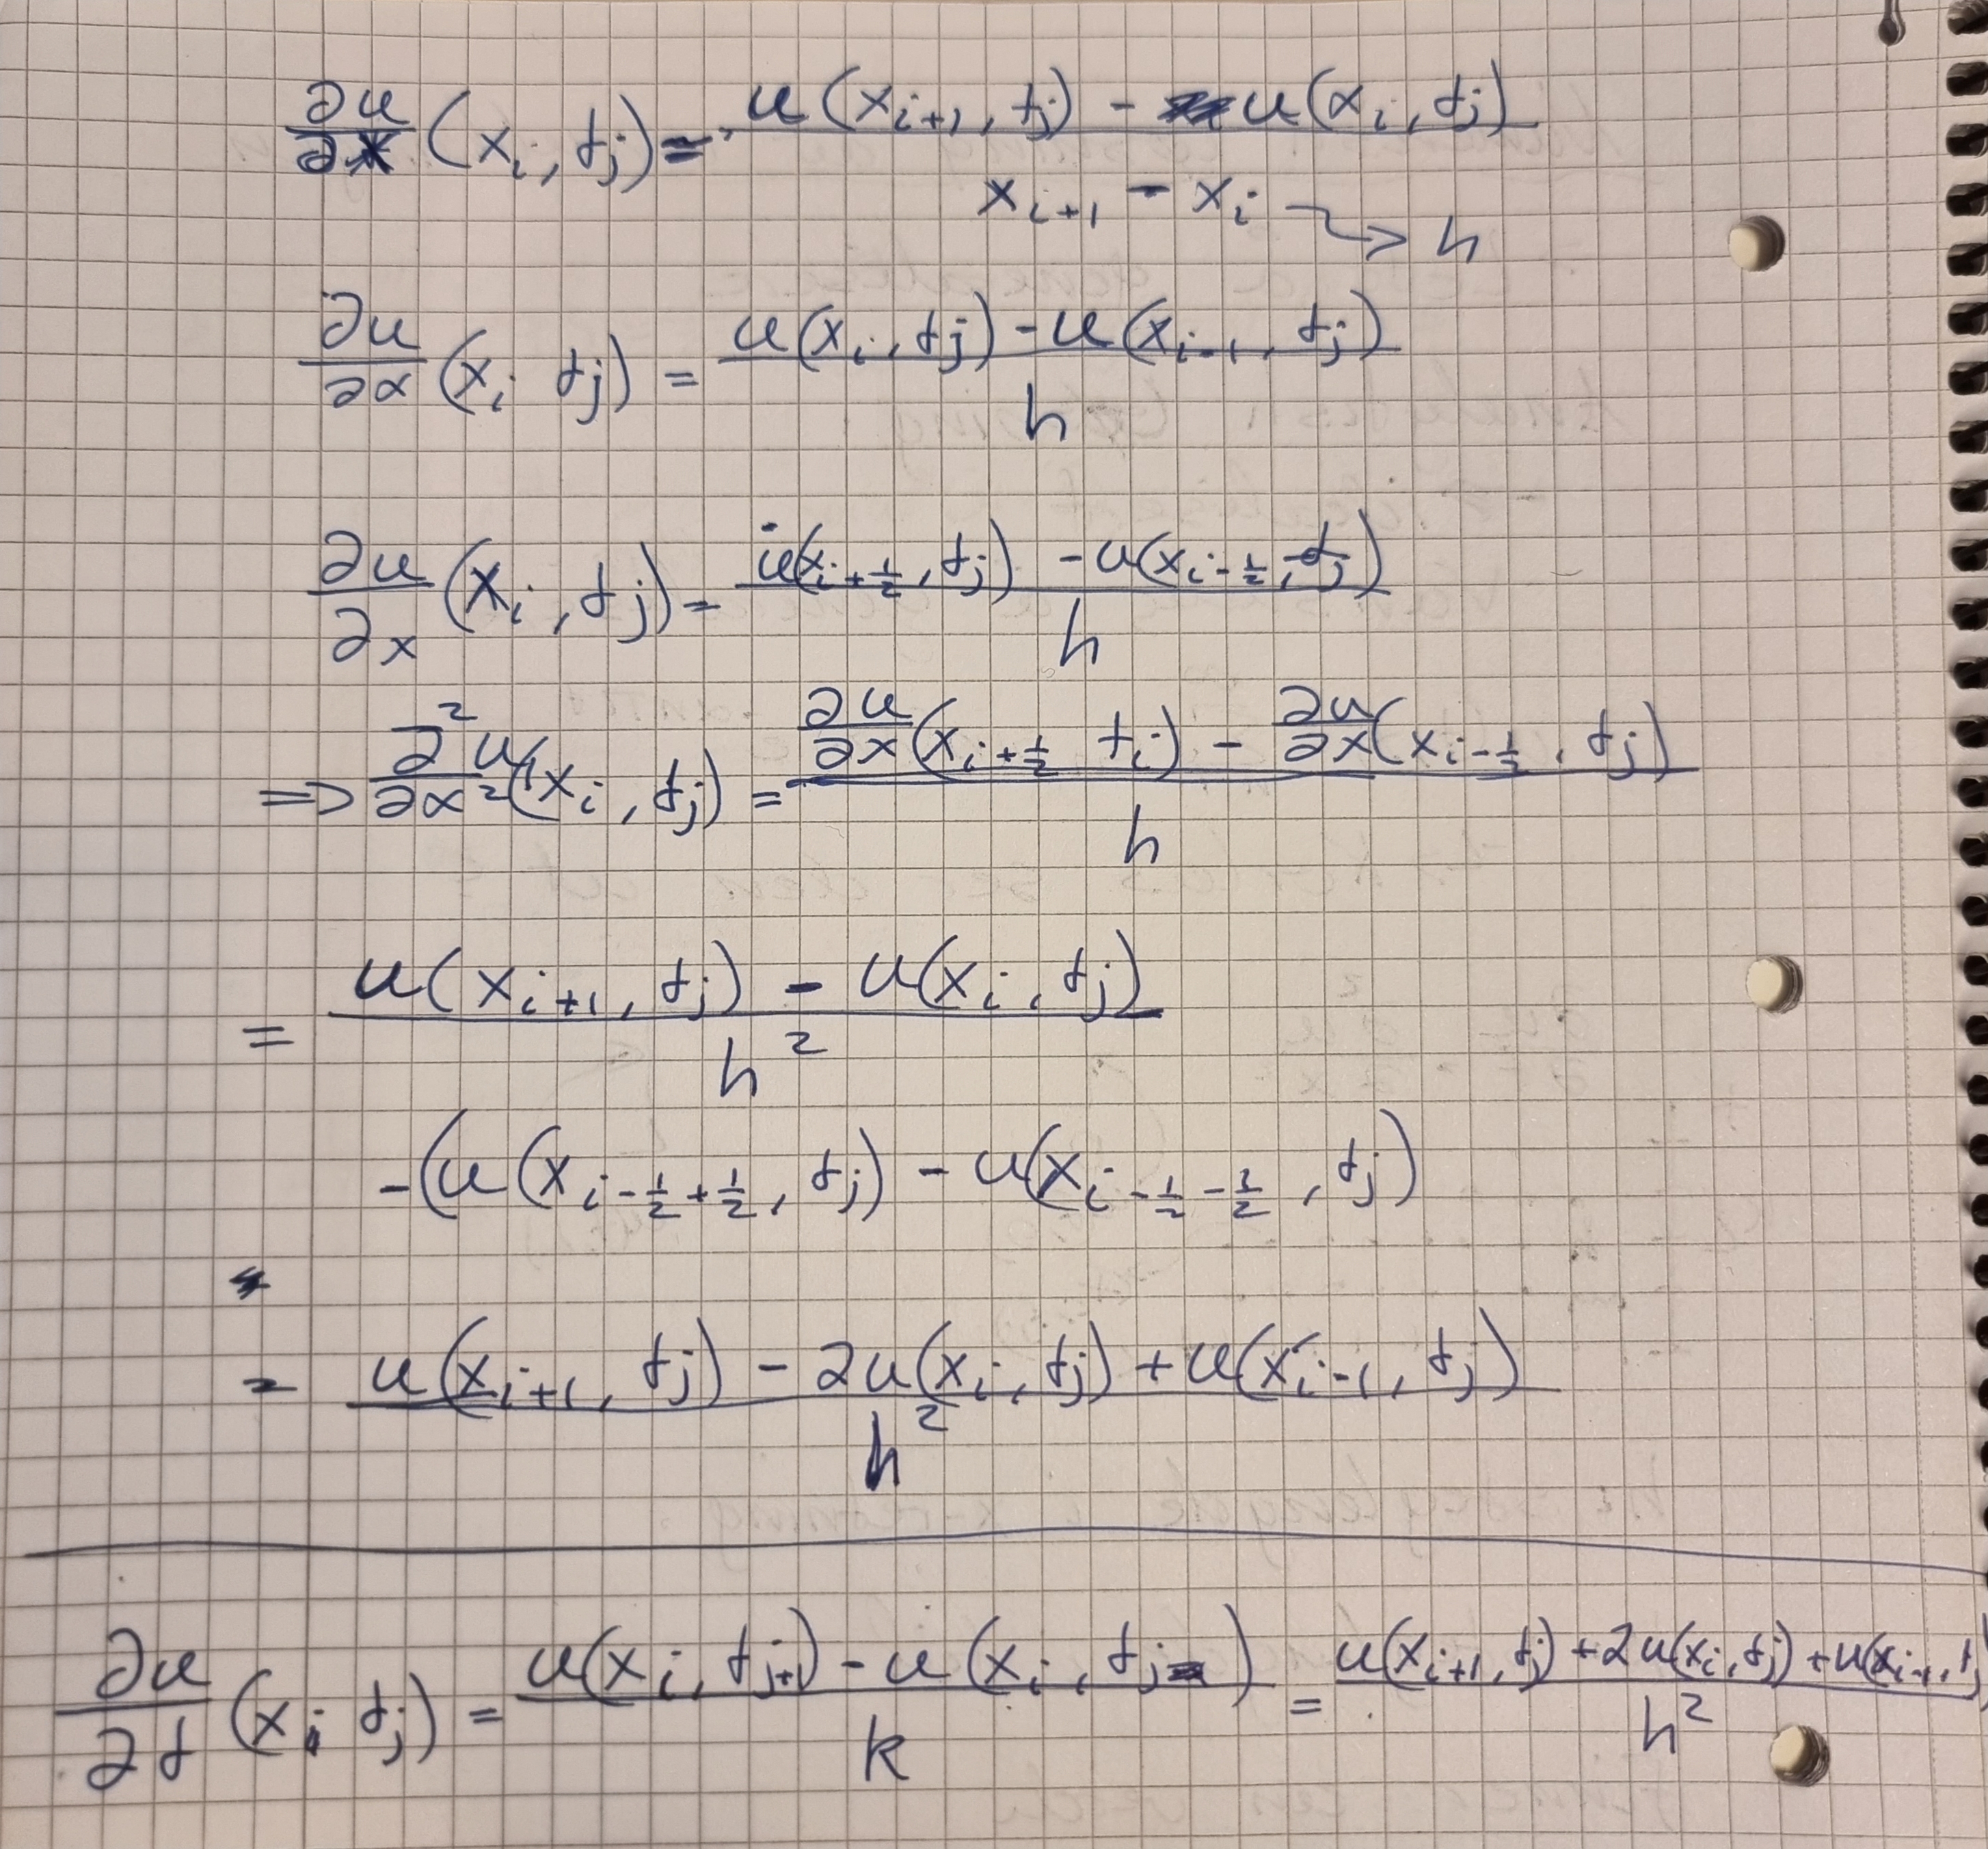 ∂u/∂x (x_i, t_j) = (u(x_{i+1}, t_j) - u(x_i, t_j)) / (x_{i+1} - x_i) → h
∂u/∂x (x_i t_j) = (u(x_i, t_j) - u(x_{i-1}, t_j)) / h
∂u/∂x (x_i, t_j) = (u(x_{i+1/2}, t_j) - u(x_{i-1/2}, t_j)) / h
=> ∂²u/∂x² (x_i, t_j) = (∂u/∂x (x_{i+1/2} t_j) - ∂u/∂x (x_{i-1/2}, t_j)) / h
= (u(x_{i+1}, t_j) - u(x_i, t_j)) / h²
-(u(x_{i-1/2+1/2}, t_j) - u(x_{i-1/2-1/2}, t_j)
= (u(x_{i+1}, t_j) - 2u(x_i, t_j) + u(x_{i-1}, t_j)) / h²
∂u/∂t (x_i t_j) = (u(x_i, t_{j+1}) - u(x_i, t_j)) / k = (u(x_{i+1}, t_j) + 2u(x_i, t_j) + u(x_{i-1}, t_j)) / h²